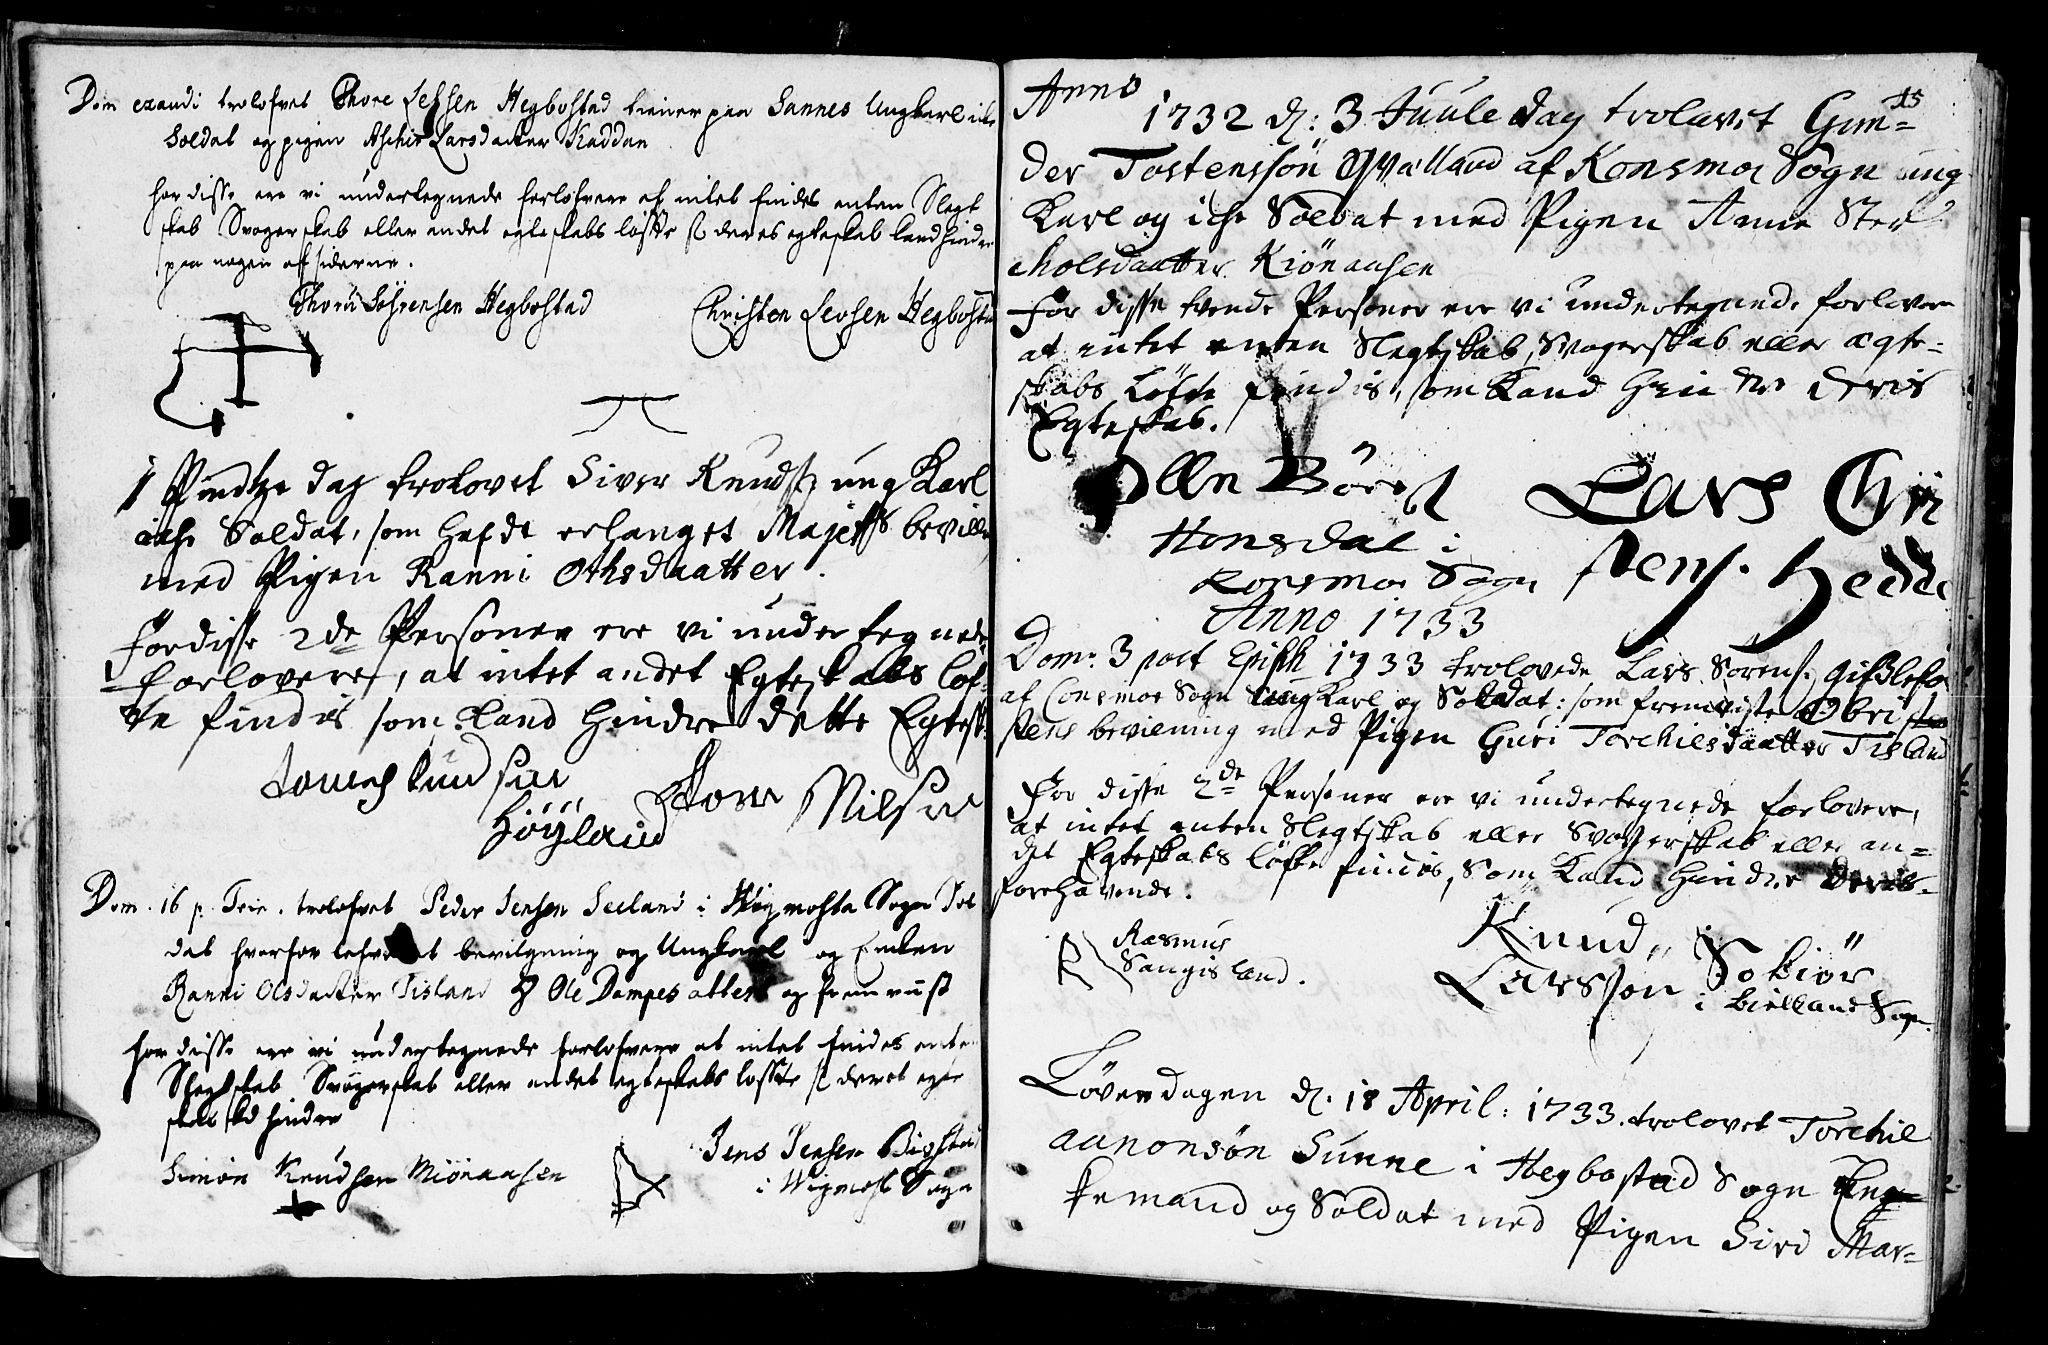 Dom exaudi trolofvet Thore Lefsen Hegbostad tiener paa Sannes Ungkarl icke
Soldat og pigen Aschie Larsdatter Kaddan
for disse ere vi undertegnede forlofvere at intet findes enten Slegt
skab Svogerskab eller andet egteskabs løffte deres egteskab kand hindre
paa nogen af siderne.
Thore Sørensen Hegbostad Christen Levsen Hegbostad
1 Pindtze dag trolovet Siver Knuds ung Karl
iche Soldat, som hafde erlanget Majets bevilln
med Pigen Ranni Othsdaatter.
For disse 2de Personer ere vi undertegnede
forlovere, at intet andet Egteskabs løf
te findis som kand hindre dette Egtesk:
tomes knudsen
Høyland Tore Nilsen
Dom. 16 p. Trin. trolofvet Peder Jensen Seeland i Sogn Sol
dat hvorfor bevilgning og Ungkarl og Encken
Ranni Olsdatter Tisland Ole Dampes og fremviist
for disse ere vi undertegnede forlofvere at intet findes enten
Slegtskab Svogerskab eller andet egteskabs løffte deres egte
skab kd hindre
Simon Knudsen Miønaasen
Jens Jensen Bigstad
i Wigmost Sogn
15
Anno
1732 d: 3 Juule dag trolovet Gun=
der Tostenssøn Qvalland af Konsmoe Sogn ung
Karl og iche Soldat med Pigen Anne Ster
cholsdaatter Kiønaasen
For disse tvende Personer ere vi undertegnede forlovere
at intet enten Slegtskab, Svogerskab eller ægte=
skabs Løfte findis, som kand hindre deris
Egteskab.
Olle Børs Lars Chri
Honsdal i stens. Hedde
Konsmoe Sogn
Anno 1733
Dom: 3 post Epiph 1733 trolovede Lars Sorens: Gislefos
af Consmoe Sogn ung Karl og Soldat: som fremviste Obrist
stens bevilning med Pigen Guri Torchilsdaatter Tisland
For disse 2de Personer ere vi undertegnede forlovere,
at intet enten Slegtskab eller Svogerskab eller an=
det Egteskabs løfte findis, som Kand hindre deris
forehavende.
Rasmus Knud
Saugisland. Larsson Sokiør
i bielland Sogn.
Løverdagen d. 18 April: 1733. trolovet Torchil
aanonsøn Sunne i Hegbostad Sogn Enc=
kemand og Soldat med Pigen Siri Mar=